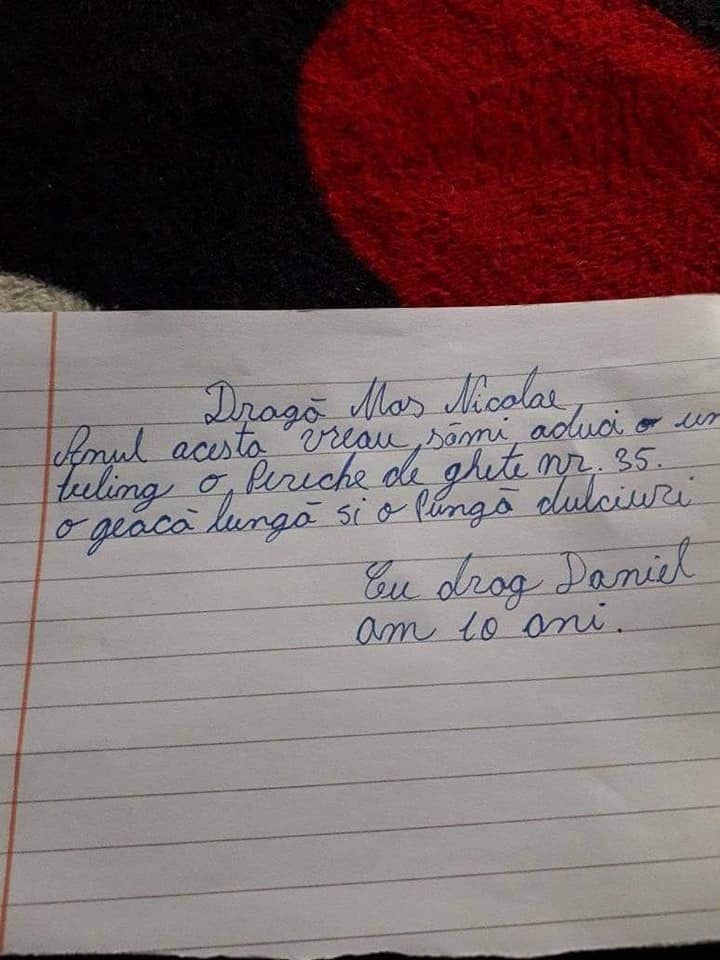 Dragă Mos Nicolae
Anul acesta vreau sămi aduci un
tuling o Pereche de ghete nr. 35.
o geacă lungă si o Pungă dulciuri
Cu drag Daniel
am 10 ani.